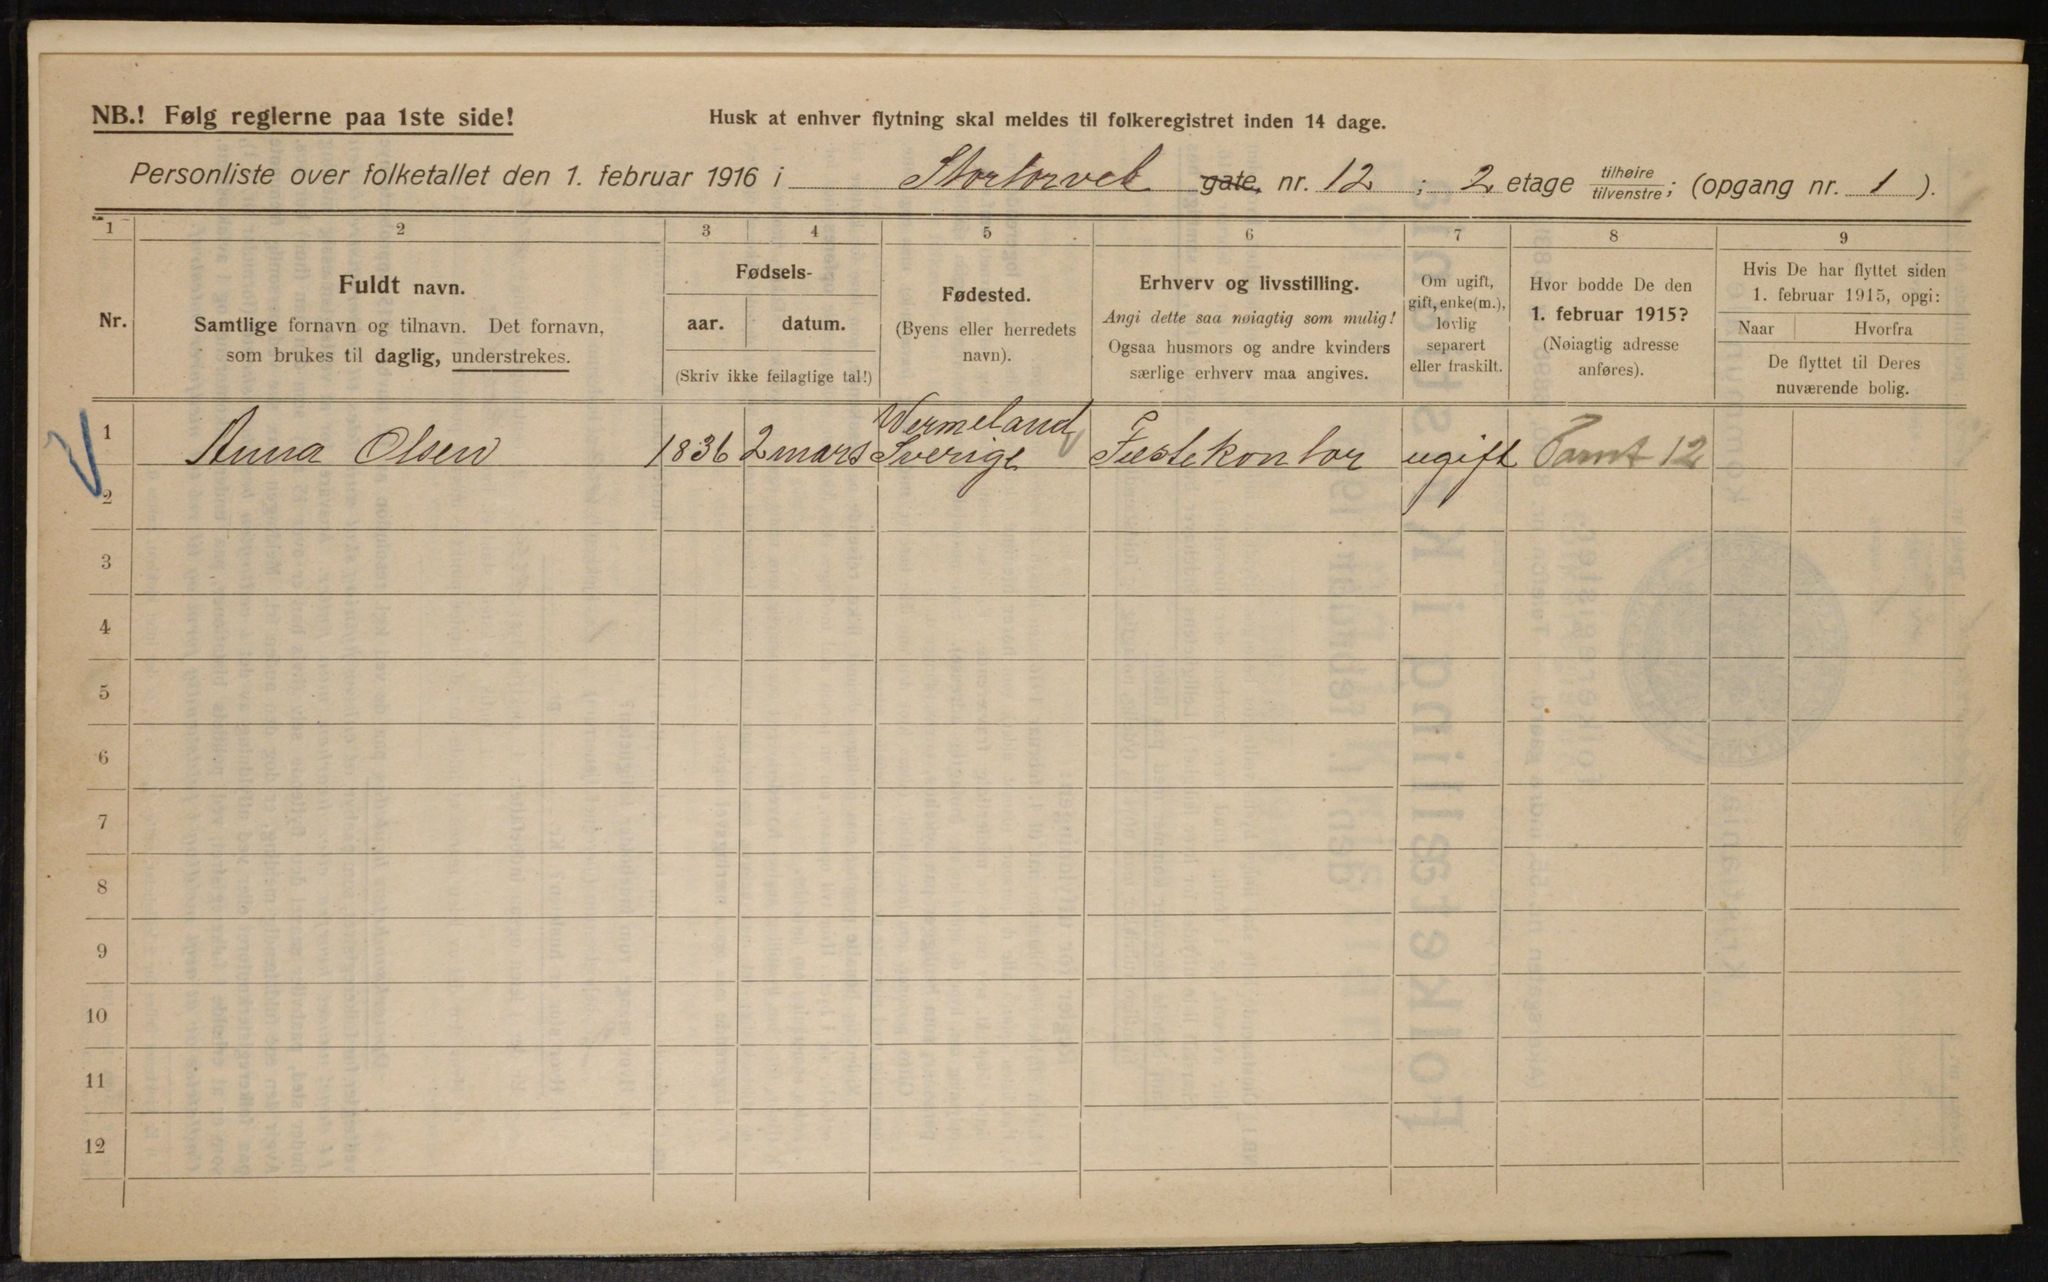 NB.! Følg reglerne paa 1ste side!
Husk at enhver flytning skal meldes til folkeregistret inden 14 dage.
Personliste over folketallet den 1. februar 1916 i Stortorvet gate, nr. 12 ; 2 etage tilhøire/tilvenstre; (opgang nr. 1 ).
1 2 3 4 5 6 7 8 9
Nr.
Fuldt navn.
Samtlige fornavn og tilnavn. Det fornavn,
som brukes til daglig, understrekes.
Fødsels-
aar. datum.
(Skriv ikke feilagtige tal!)
Fødested.
(Byens eller herredets
navn).
Erhverv og livsstilling.
Angi dette saa nøiagtig som mulig!
Ogsaa husmors og andre kvinders
særlige erhverv maa angives.
Om ugift,
gift, enke(m.),
lovlig
separert
eller fraskilt.
Hvor bodde De den
1. februar 1915?
(Nøiagtig adresse
anføres).
Hvis De har flyttet siden
1. februar 1915, opgi:
Naar Hvorfra
De flyttet til Deres
nuværende bolig.
1 Anna Olsen 1836 2 mars Vermeland Sverige Fæstekontor ugift Tomt 12
2
3
4
5
6
7
8
9
10
11
12